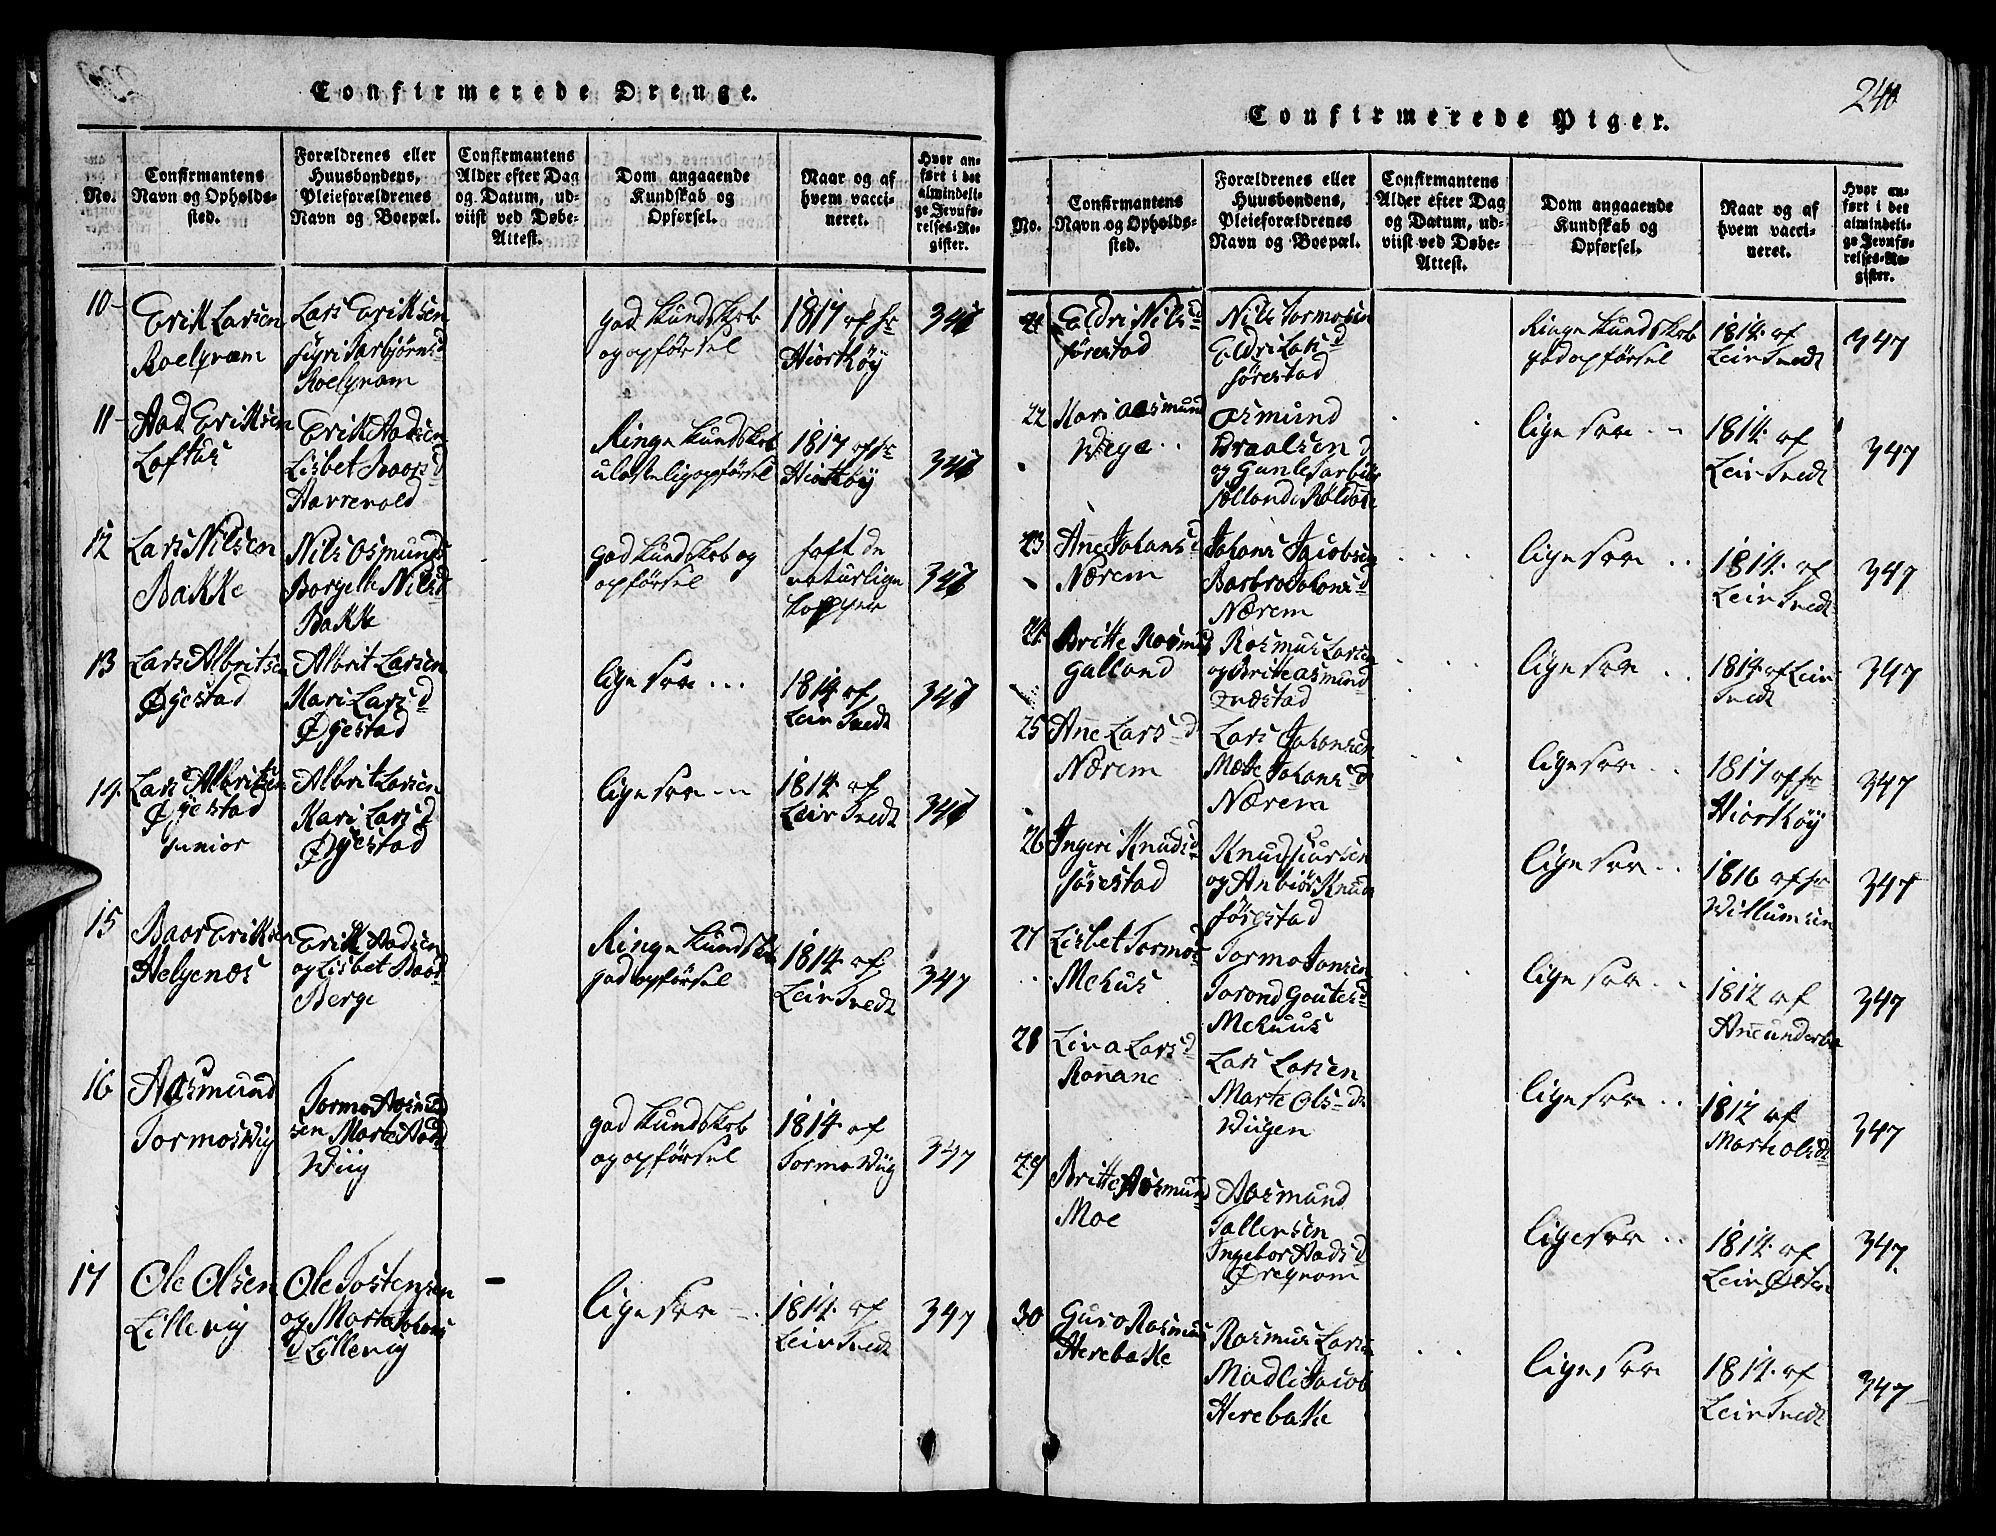 Confirmerede Drenge.
No.
Confirmantens
Navn og Opholds-
sted.
Forældrenes eller
Huusbondens,
Pleieforældrenes
Navn og Boepæl.
Confirmantens
Alder efter Dag
og Datum, ud-
viist ved Døbe-
Attest.
Dom angaaende
Kundskab og
Opførsel.
Naar og af
hvem vacci-
neret.
Hvor an-
ført i det
almindeli-
ge Jevnfø-
relses-Re-
gister.
10-
Erik Larsen
Roelqvam
Lars Eriksen
Sigri Torbjørnsd
Roelqvam
god kundskab
og opførsel
1817 af hr
Hiortkøy
347
11-
Aad Eriksen
Lofthus
Erik Aadsen
Lisbet Baarsd
Havervold
Ringe kundskab
ulastelig opførsel
1817 af hr
Hiortkøy
347
12
Lars Nilsen
Bakke
Nils Osmunds
Borgille Nilsd
Bakke
god kundskab og
opførsel
haft de
naturlige
kopper
347
13
Lars Albritsen
Øgestad
Albrit Larsen
Kari Larsd
Øgestad
lige saa ...
1814 af
Leir Tvedt
347
14
Lars Albritsen
Øgestad
junior
Albrit Larsen
Kari Larsd
Øgestad
lige saa ...
1814 af
Leir Tvedt
347
15
Baar Eriksen
Helgenes
Erik Aadsen
og Lisbet Baarsd
Berge
Ringe kundskab
god opførsel
1814 af
Leir Tvedt
347
16
Aasmund
Tormos Wig
Tormo Aasmund
sen Marte Aads
Wiig
god kundskab
og opførsel
1814 af
Tormo Wiig
347
17
Ole Olsen
Lillevig
Ole Tostensen
og Marta Johans
d Lillevig
lige saa
1814 af
Leir Tvedt
347
240
Confirmerede Piger.
No.
Confirmantens
Navn og Opholds-
sted.
Forældrenes eller
Huusbondens,
Pleieforældrenes
Navn og Boepæl.
Confirmantens
Alder efter Dag
og Datum, ud-
viist ved Døbe-
Attest.
Dom angaaende
Kundskab og
Opførsel.
Naar og af
hvem vacci-
neret.
Hvor an-
ført i det
almindeli-
ge Jevnfø-
relses-Re-
gister.
21
Eldri Nilsd
Sørestad
Nils Tormosen
Eldri Larsd
Sørestad
Ringe kundskab
god opførsel
1814 af
Leir Tvedt
347
22
Kari Aasmund
Wege
Osmund
og Gunle
lige saa
1814 af
Leir Tvedt
347
23
Ane Johansd
Nærem
Johans Jacobsen
Barbro Johansd
Nærem
lige saa
1814 af
Leir Tvedt
347
24
Britte Rasmus
Galland
Rasmus Larsen
og Britte Asmund
lige saa
1814 af Leir
Tvedt
347
25
Ane Larsd
Nærem
Lars Johansen
Mette Johansd
Nærem
lige saa
1817 af hr
Hiortkøy
347
26
Ingeri Knudsd
Sørestad
Knud Siursen
og Anbiør Knuds
Sørestad
lige saa
1816 af hr
Willumsen
347
27
Lisbet Tormos
Mehus
Tormo Jonsen
Torond Goutesd
Mehuus
lige saa
1812 af
347
28
Lina Larsd
Ronane
Lars Larsen
Marte Olsd
Wiigen
lige saa
1812 af
Marte Olsd
347
29
Britte Aasmund
Moe
Aasmund
Tollersen
Ingebor Aadsd
Øreqvam
lige saa
1814 af
Leir
347
30
Guro Rasmus
Herebakke
Rasmus Larsen
Madli Jacob
Herebakke
lige saa
1814 af
Leir Tvedt
347